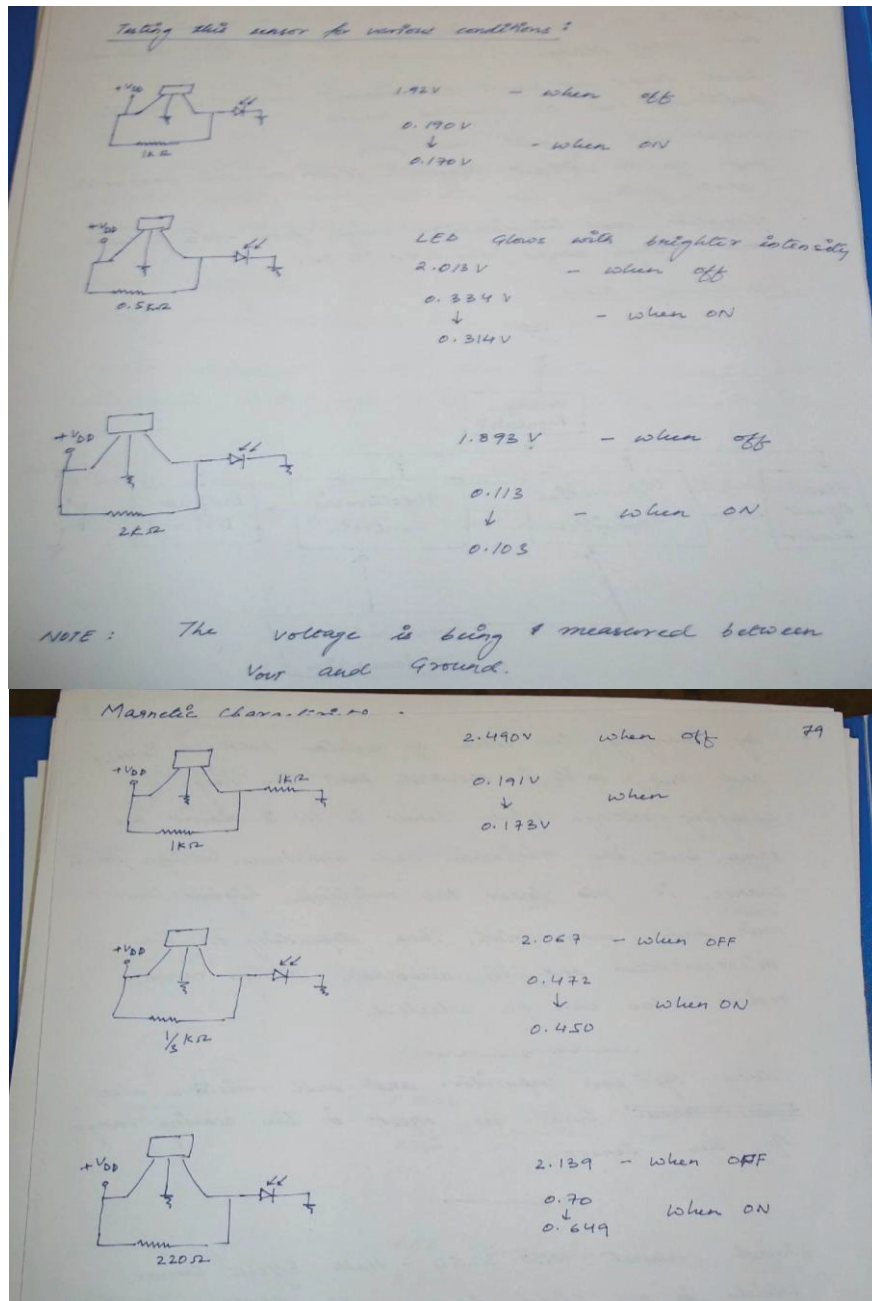 Testing this sensor for various conditions :
+VDD
1KΩ
1.92V - when off
0.190V
↓ - when ON
0.170V
+VDD
0.5KΩ
LED Glows with brighter intensity
2.013V - when off
0.334V
↓ - when ON
0.314V
+VDD
2KΩ
1.893V - when off
0.113
↓ - when ON
0.103
NOTE : The voltage is being measured between
VOUT and Ground.
Magnetic
79
+VDD
1KΩ
1KΩ
2.490V when off
0.191V
↓ when
0.173V
+VDD
1/3 KΩ
2.067 - when OFF
0.472
↓ when ON
0.450
+VDD
220Ω
2.139 - when OFF
0.70
↓ when ON
0.649